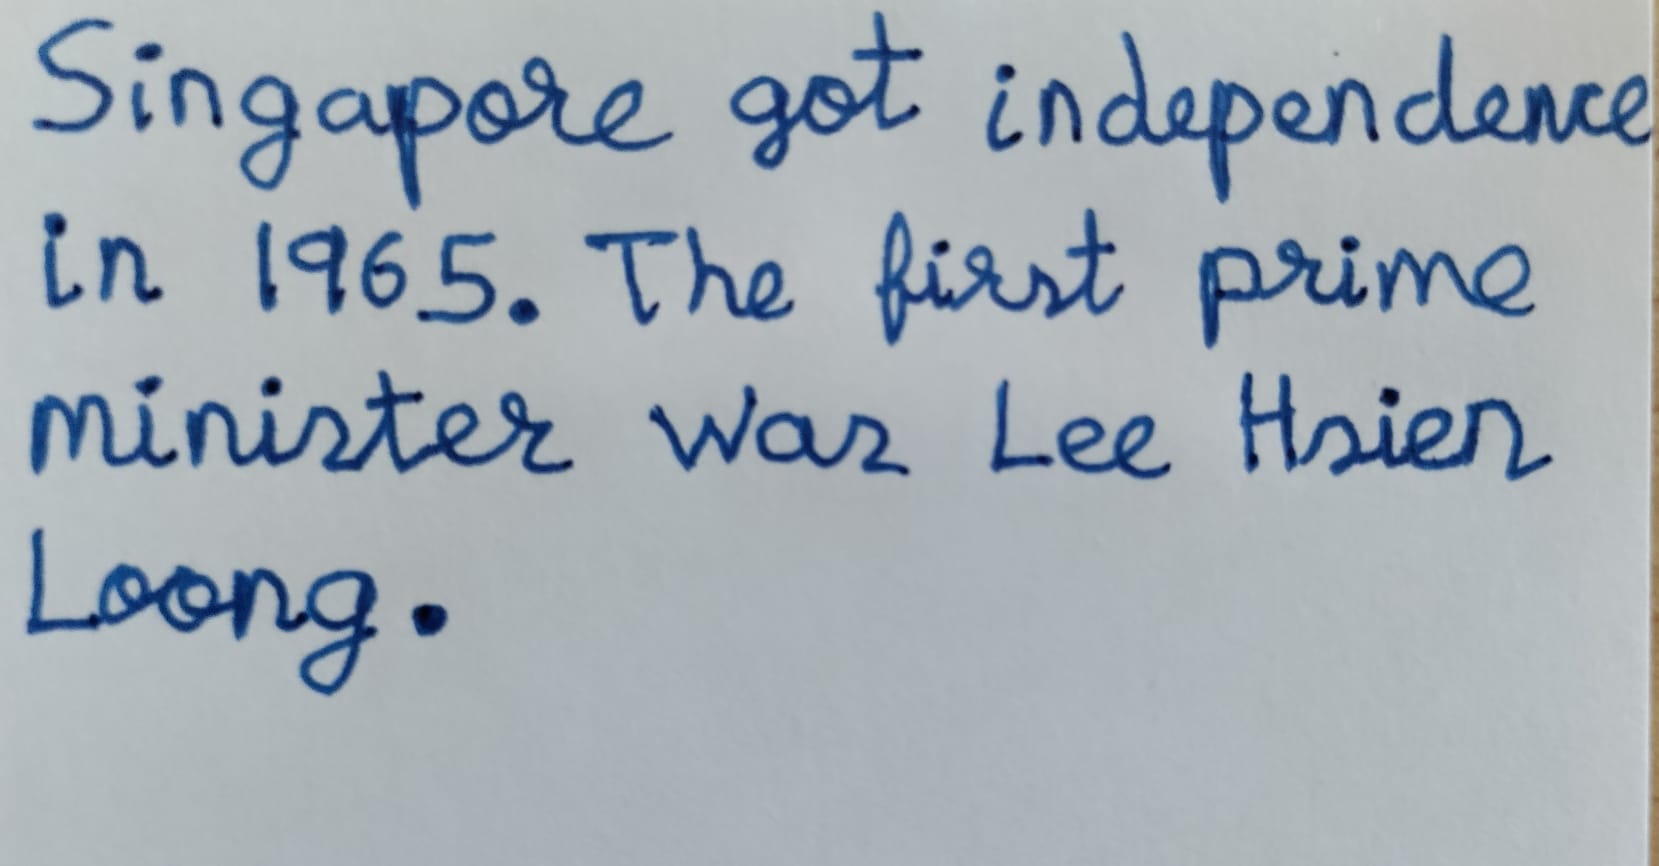 Singapore got independence
in 1965. The first prime
minister was Lee Hsien
Loong.